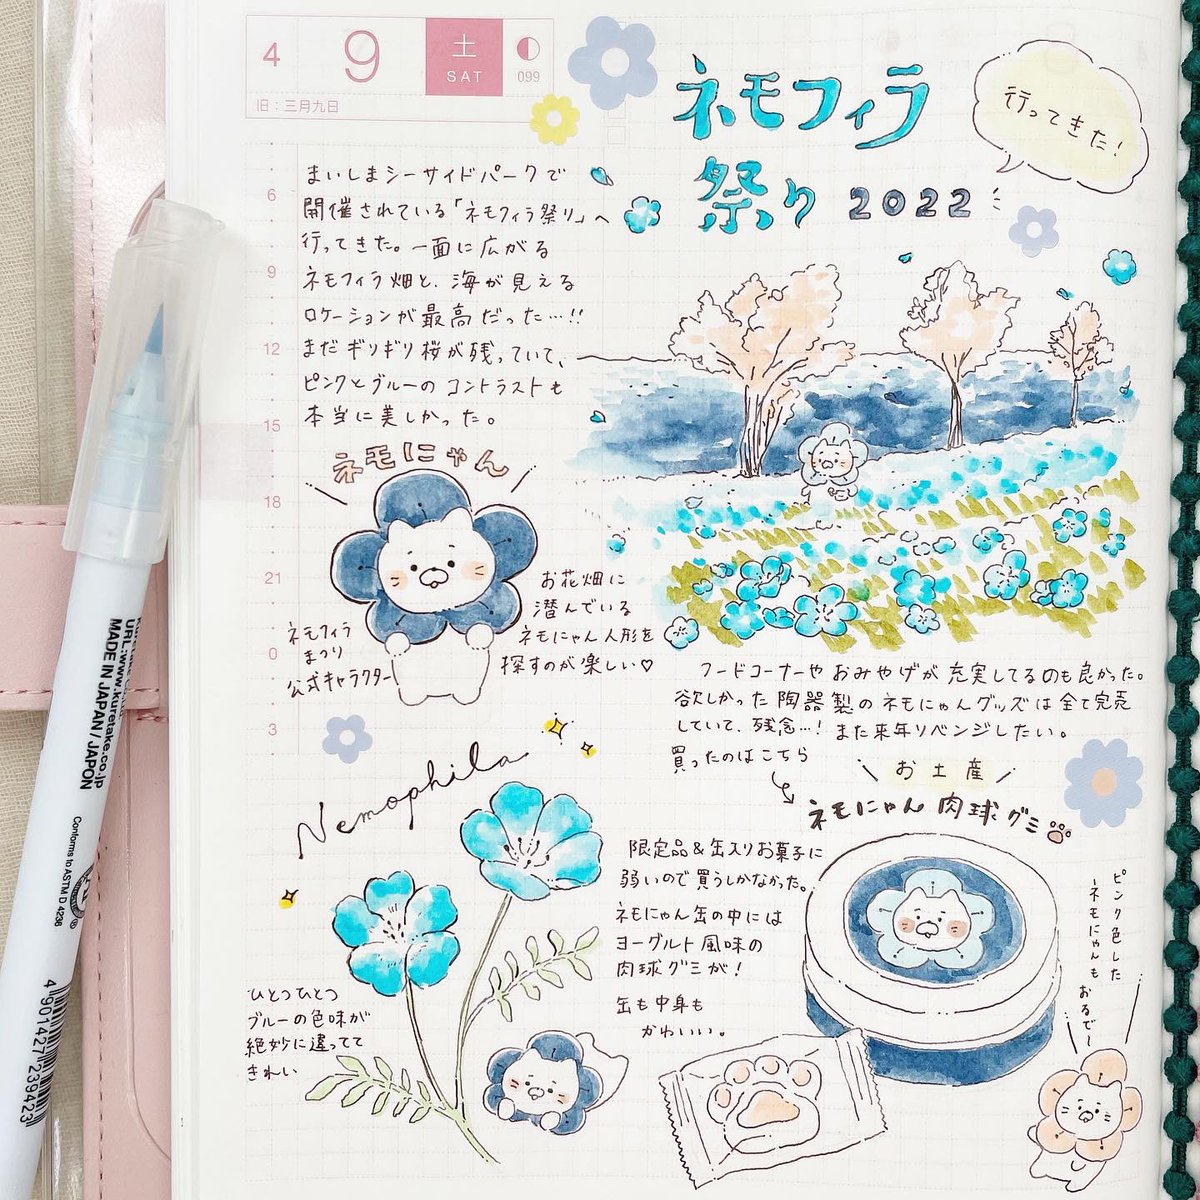 4
9
土
SAT
099
旧：三月九日
ネモフィラ
祭り 2022
行ってきた！
6
9
12
15
18
21
0
3
まいしまシーサイドパークで
開催されている「ネモフィラ祭り」へ
行ってきた。一面に広がる
ネモフィラ畑と、海が見える
ロケーションが最高だった…!!
まだギリギリ桜が残っていて、
ピンクとブルーのコントラストも
本当に美しかった。
ネモにゃん
ネモフィラ
まつり
公式キャラクター
お花畑に
潜んでいる
ネモにゃん人形を
探すのが楽しい♡
フードコーナーやおみやげが充実してるのも良かった。
欲しかった陶器製のネモにゃんグッズは全て完売
していて、残念…！また来年リベンジしたい。
買ったのはこちら
お土産
ネモにゃん肉球グミ
限定品＆缶入りお菓子に
弱いので買うしかなかった。
ネモにゃん缶の中には
ヨーグルト風味の
肉球グミが！
缶も中身も
かわいい。
ピンク色した
ネモにゃんも
おるでー
Nemophila
ひとつひとつ
ブルーの色味が
絶妙に違ってて
きれい
URL:www.kuretake.co.jp
MADE IN JAPAN / JAPON
Conforms to ASTM D 4236
4 901427 239423